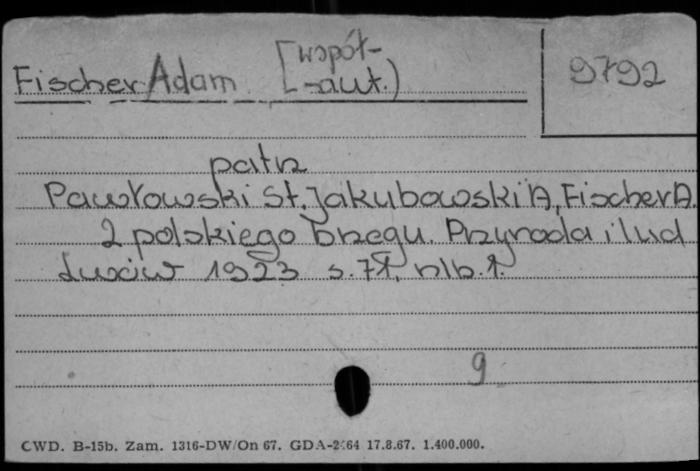 Fischer Adam [współ-
-aut.)
9792
patrz
Pawłowski St, Jakubowski A, Fischer A.
Z polskiego brzegu. Przyroda i lud
Lwów 1923 s. 71, nlb. 1.
9
CWD. B-15b. Zam. 1316-DW/On 67. GDA-2464 17.8.67. 1.400.000.